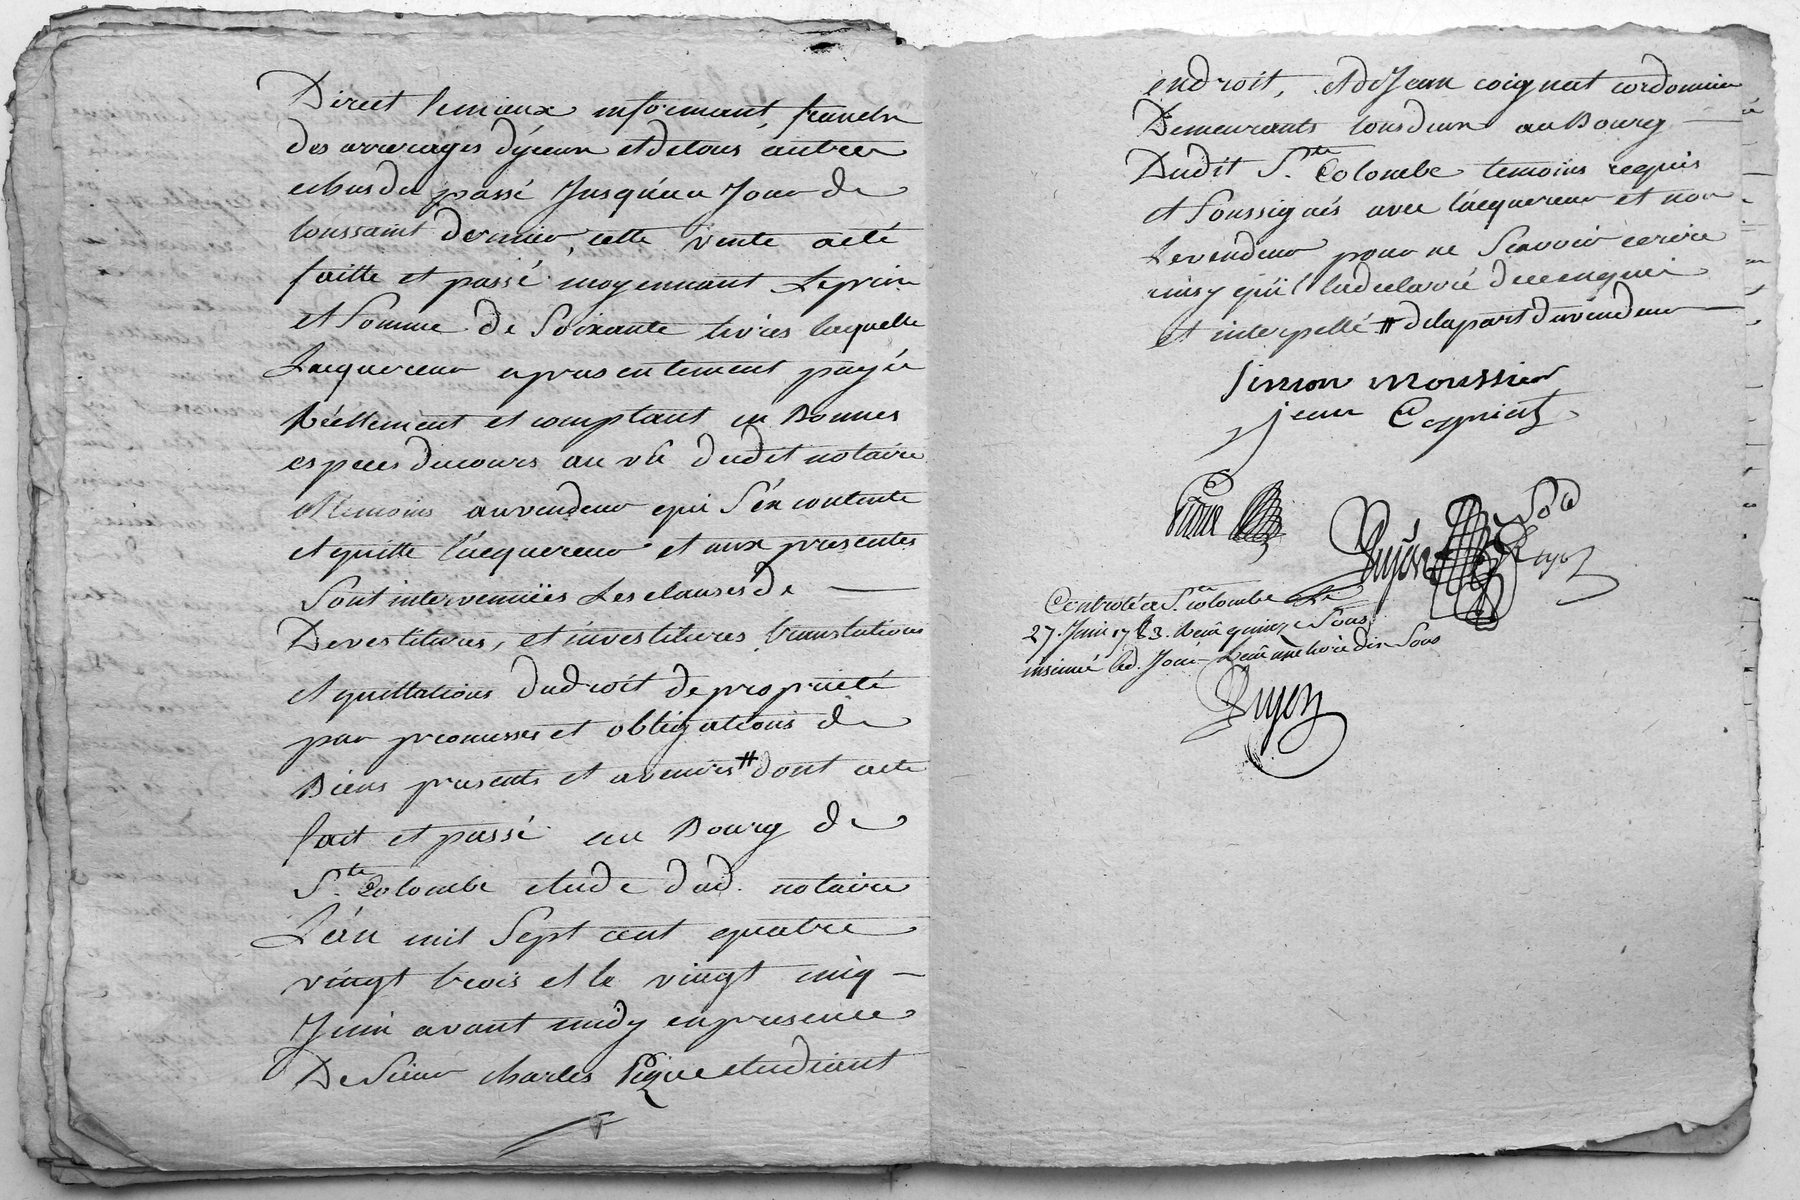 Direct le mieux informant, franche
des arrerages d'yceux et de tous autres
chos du passé Jusqu'au Jour de
toussaint dernier, cette vente a eté
faitte et passé moyennant le prix
et Somme de Soixante livres laquelle
Lacquereur a presentement payée
Réellement et comptant en Bonnes
especes du cours au vû dudit notaire
et temoins au vendeur qui S'en contente
et quitte l'acquereur et aux presentes
Sont intervenuës Les clauses de —
Devestitures, et investitures, translations
et quittations du droit de proprieté
par promesses et obligations de
Biens presents et avenirs # dont acte
fait et passé au Bourg de
S.te Colombe etude dud. notaire
L'an mil Sept cent quatre
vingt trois et le vingt cinq —
Juin avant midy en presence
De Sieur charles etudiant
endroit, et de Jean coignat cordonnier
Demeurants tous deux au Bourg —
Dudit S.te Colombe temoins requis
et Soussignés avec l'acquereur et non
Le vendeur pour ne Scavoir ecrire
ainsy qu'il l'a declarré de ce enquis
et interpellé # de la part du vendeur —
Simon moussier
jean Cogniat
Dujön
Controlé a S.te colombe Le
27. Juin 1783. Reçû quinze Sous
insinué led. Jour Reçû une livre dix Sous
Dujon